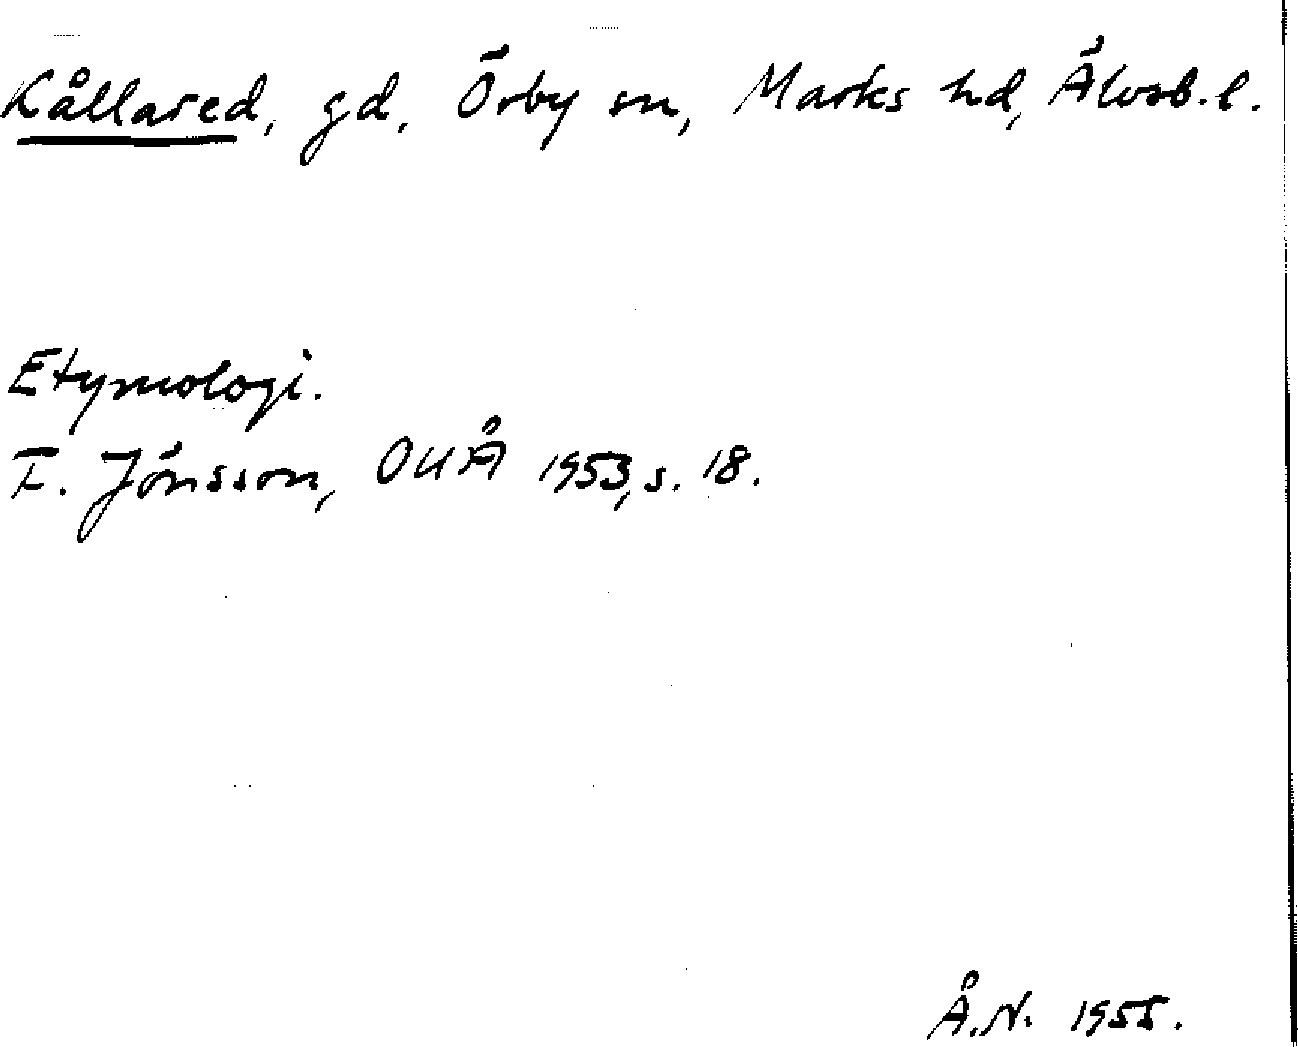 Kållared, gd, Örby sn, Marks hd, Älvsb. l.
Etymologi.
F. Jónsson, OUÅ 1953, s. 18.
Å.N. 1955.